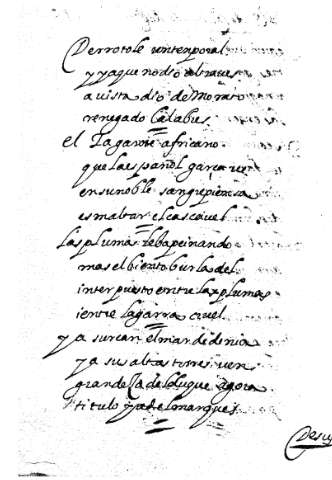 Derrotole un temporal
y ya que no dio al traues
a uista dio de Morato
renegado Calabres
el Tagarote africano
que la español garça ve
en su noble sangre piensa
esmaltar el cascauel
las plumas le ba peinando
mas el biento burla del
interpuesto entre las plumas
i entre la garra cruel
ya surcan el mar de denia
ya sus altas torres ven
grandeça del duque agora
titulo ya del marques